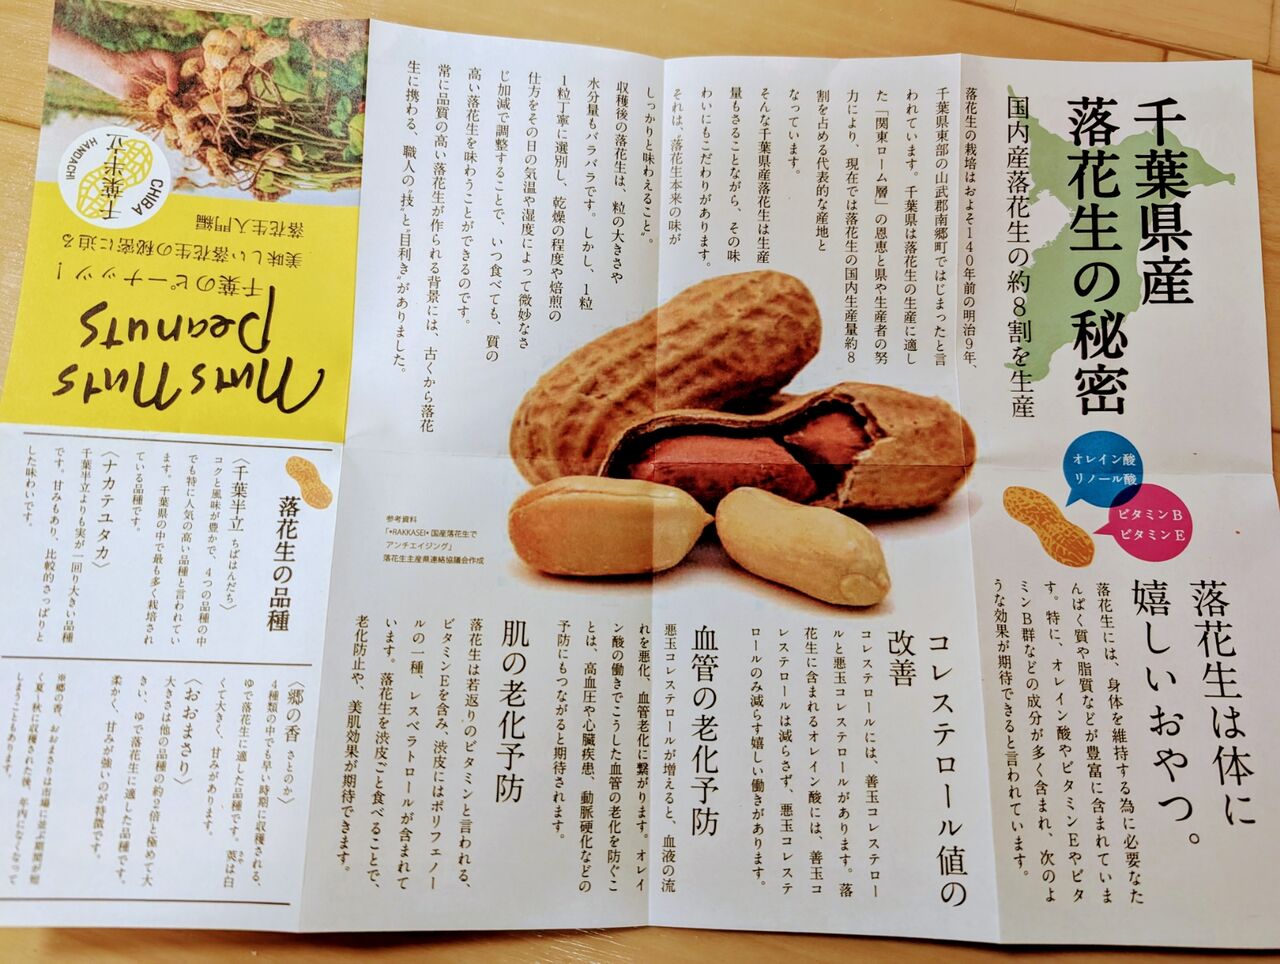 千葉県産
落花生の秘密
国内産落花生の約8割を生産
落花生の栽培はおよそ140年前の明治9年、
千葉県東部の山武郡南郷町ではじまったと言
われています。千葉県は落花生の生産に適し
た「関東ローム層」の恩恵と県や生産者の努
力により、現在では落花生の国内生産量約8
割を占める代表的な産地と
なっています。
そんな千葉県産落花生は生産
量もさることながら、その味
わいにもこだわりがあります。
それは、落花生本来の味が
しっかりと味わえること。
収穫後の落花生は、粒の大きさや
水分量もバラバラです。しかし、1粒
1粒丁寧に選別し、乾燥の程度や焙煎の
仕方をその日の気温や湿度によって微妙なさ
じ加減で調整することで、いつ食べても、質の
高い落花生を味わうことができるのです。
常に品質の高い落花生が作られる背景には、古くから落花
生に携わる、職人の“技”と“目利き”がありました。
オレイン酸
リノール酸
ビタミンB
ビタミンE
落花生は体に
嬉しいおやつ。
落花生には、身体を維持する為に必要なた
んぱく質や脂質などが豊富に含まれていま
す。特に、オレイン酸やビタミンEやビタ
ミンB群などの成分が多く含まれ、次のよ
うな効果が期待できると言われています。
コレステロール値の
改善
コレステロールには、善玉コレステロー
ルと悪玉コレステロールがあります。落
花生に含まれるオレイン酸には、善玉コ
レステロールは減らさず、悪玉コレステ
ロールのみ減らす嬉しい働きがあります。
血管の老化予防
悪玉コレステロールが増えると、血液の流
れを悪化、血管老化に繋がります。オレイ
ン酸の働きでこうした血管の老化を防ぐこ
とは、高血圧や心臓疾患、動脈硬化などの
予防にもつながると期待されます。
肌の老化予防
落花生は若返りのビタミンと言われる、
ビタミンEを含み、渋皮にはポリフェノー
ルの一種、レスベラトロールが含まれて
います。落花生を渋皮ごと食べることで、
老化防止や、美肌効果が期待できます。
参考資料
「•RAKKASEI•国産落花生で
アンチエイジング」
落花生主産県連絡協議会作成
千葉半立
CHIBA
HANDACHI
Nuts Nuts
Peanuts
千葉のピーナッツ!
美味しい落花生の秘密に迫る
落花生入門編
落花生の品種
〈千葉半立 ちばはんだち〉
コクと風味が豊かで、4つの品種の中
でも特に人気の高い品種と言われてい
ます。千葉県の中で最も多く栽培され
ている品種です。
〈ナカテユタカ〉
千葉半立よりも実が一回り大きい品種
です。甘みもあり、比較的さっぱりと
した味わいです。
〈郷の香 さとのか〉
4種類の中でも早い時期に収穫される、
ゆで落花生に適した品種です。莢は白
さや
くて大きく、甘みがあります。
〈おおまさり〉
大きさは他の品種の約2倍と極めて大
きい、ゆで落花生に適した品種です。
柔かく、甘みが強いのが特徴です。
※郷の香、おおまさりは市場に並ぶ期間が短
く夏・秋に収穫された後、年内になくなって
しまうこともあります。